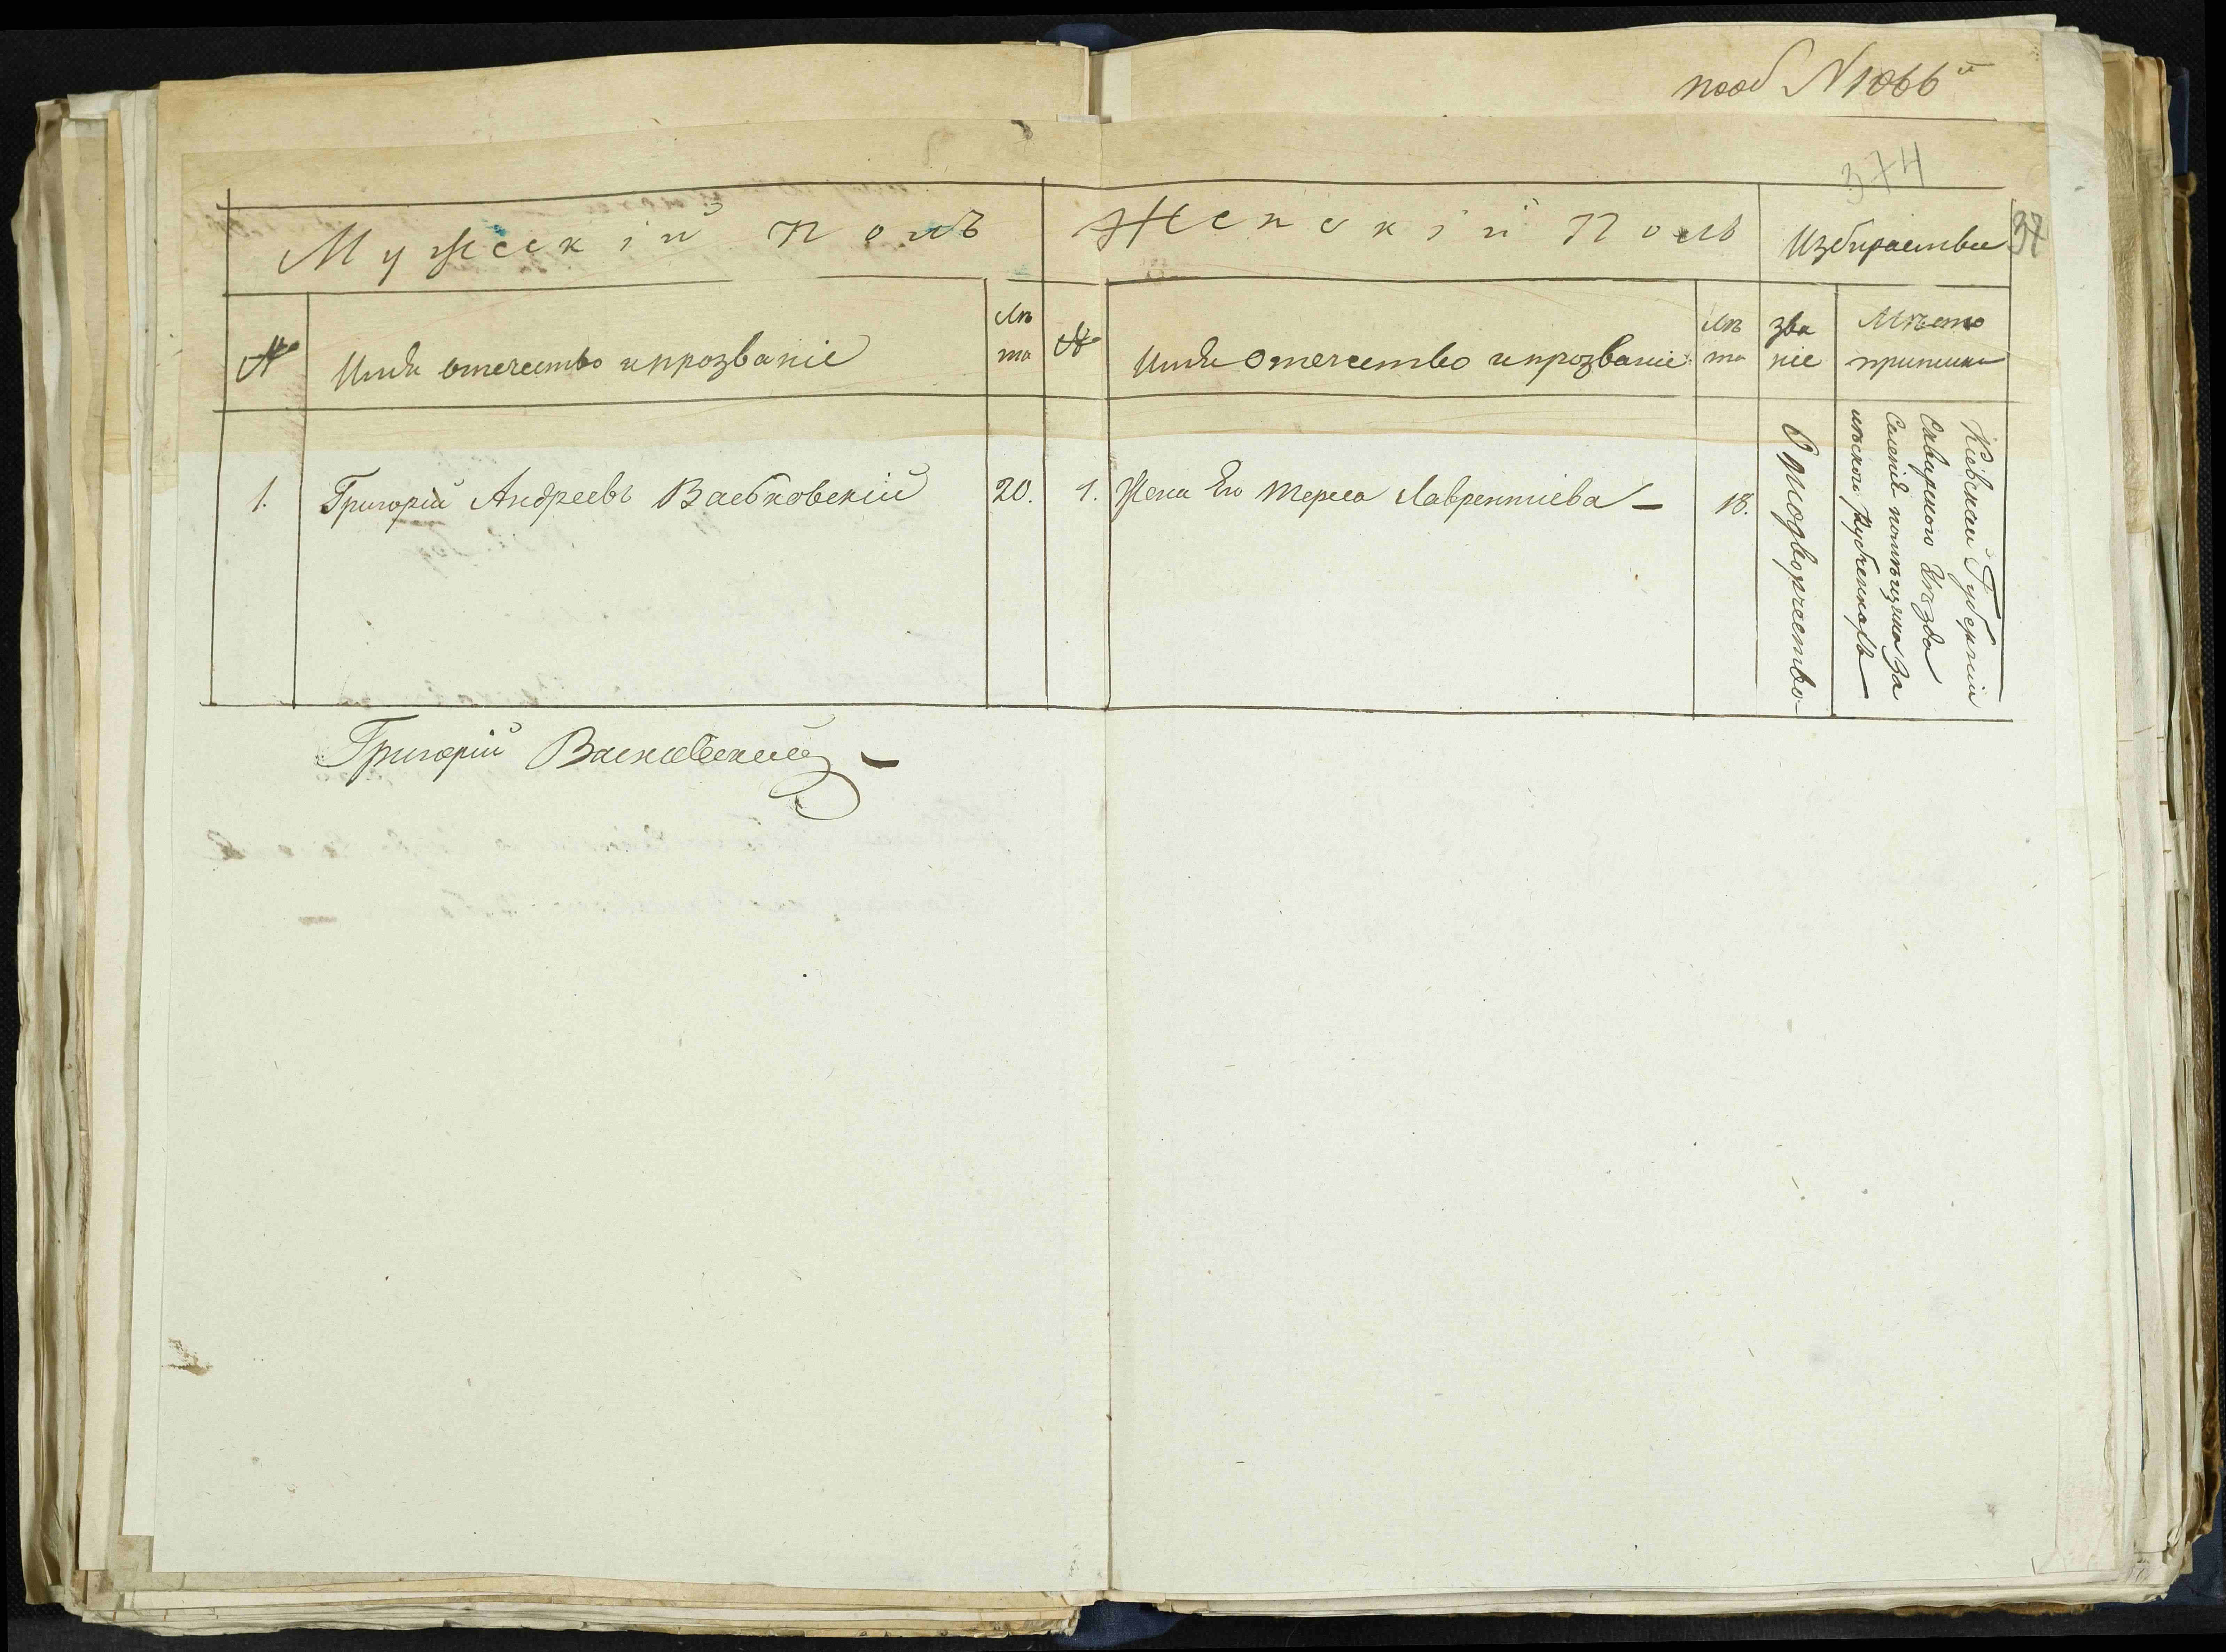 N 1066й
374
Мужескій полъ
Женскій Полъ
Избираетъ
37
№
Имя отечество и прозваніе
лѣ
та
№
Имя отечество и прозваніе
лѣ
та
зва
ніе
Мѣсто
приписки
1.
Григорій Андреевъ Васьковскій
20.
1.
Жена Его Тереса Лаврентіева —
18.
Однодворчество
Кіевской Губерніи
Сквирского Уѣзда
Селеніе помѣщика За
лѣского Рубченкахъ —
Григорій Васковскій —